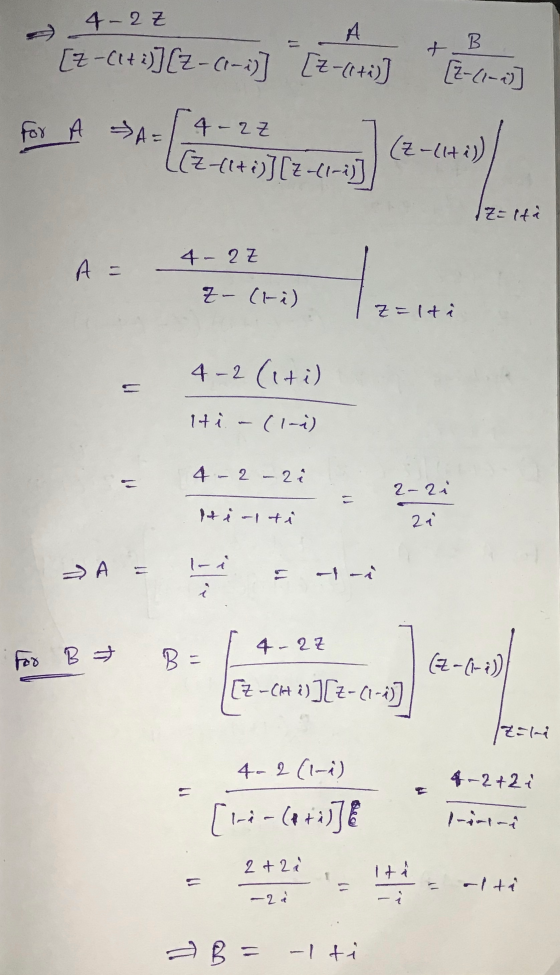 ⇒ (4-2z)/([z-(1+i)][z-(1-i)]) = A/[z-(1+i)] + B/[z-(1-i)]
For A ⇒ A = [(4-2z)/([z-(1+i)][z-(1-i)])] (z-(1+i)) |z=1+i
A = (4-2z)/(z-(1-i)) | z=1+i
= (4-2(1+i))/(1+i-(1-i))
= (4-2-2i)/(1+i-1+i) = (2-2i)/(2i)
⇒ A = (1-i)/i = -1-i
For B ⇒ B = [(4-2z)/([z-(1+i)][z-(1-i)])] (z-(1-i)) |z=1-i
= (4-2(1-i))/([1-i-(1+i)]) = (4-2+2i)/(1-i-1-i)
= (2+2i)/(-2i) = (1+i)/(-i) = -1+i
⇒ B = -1+i